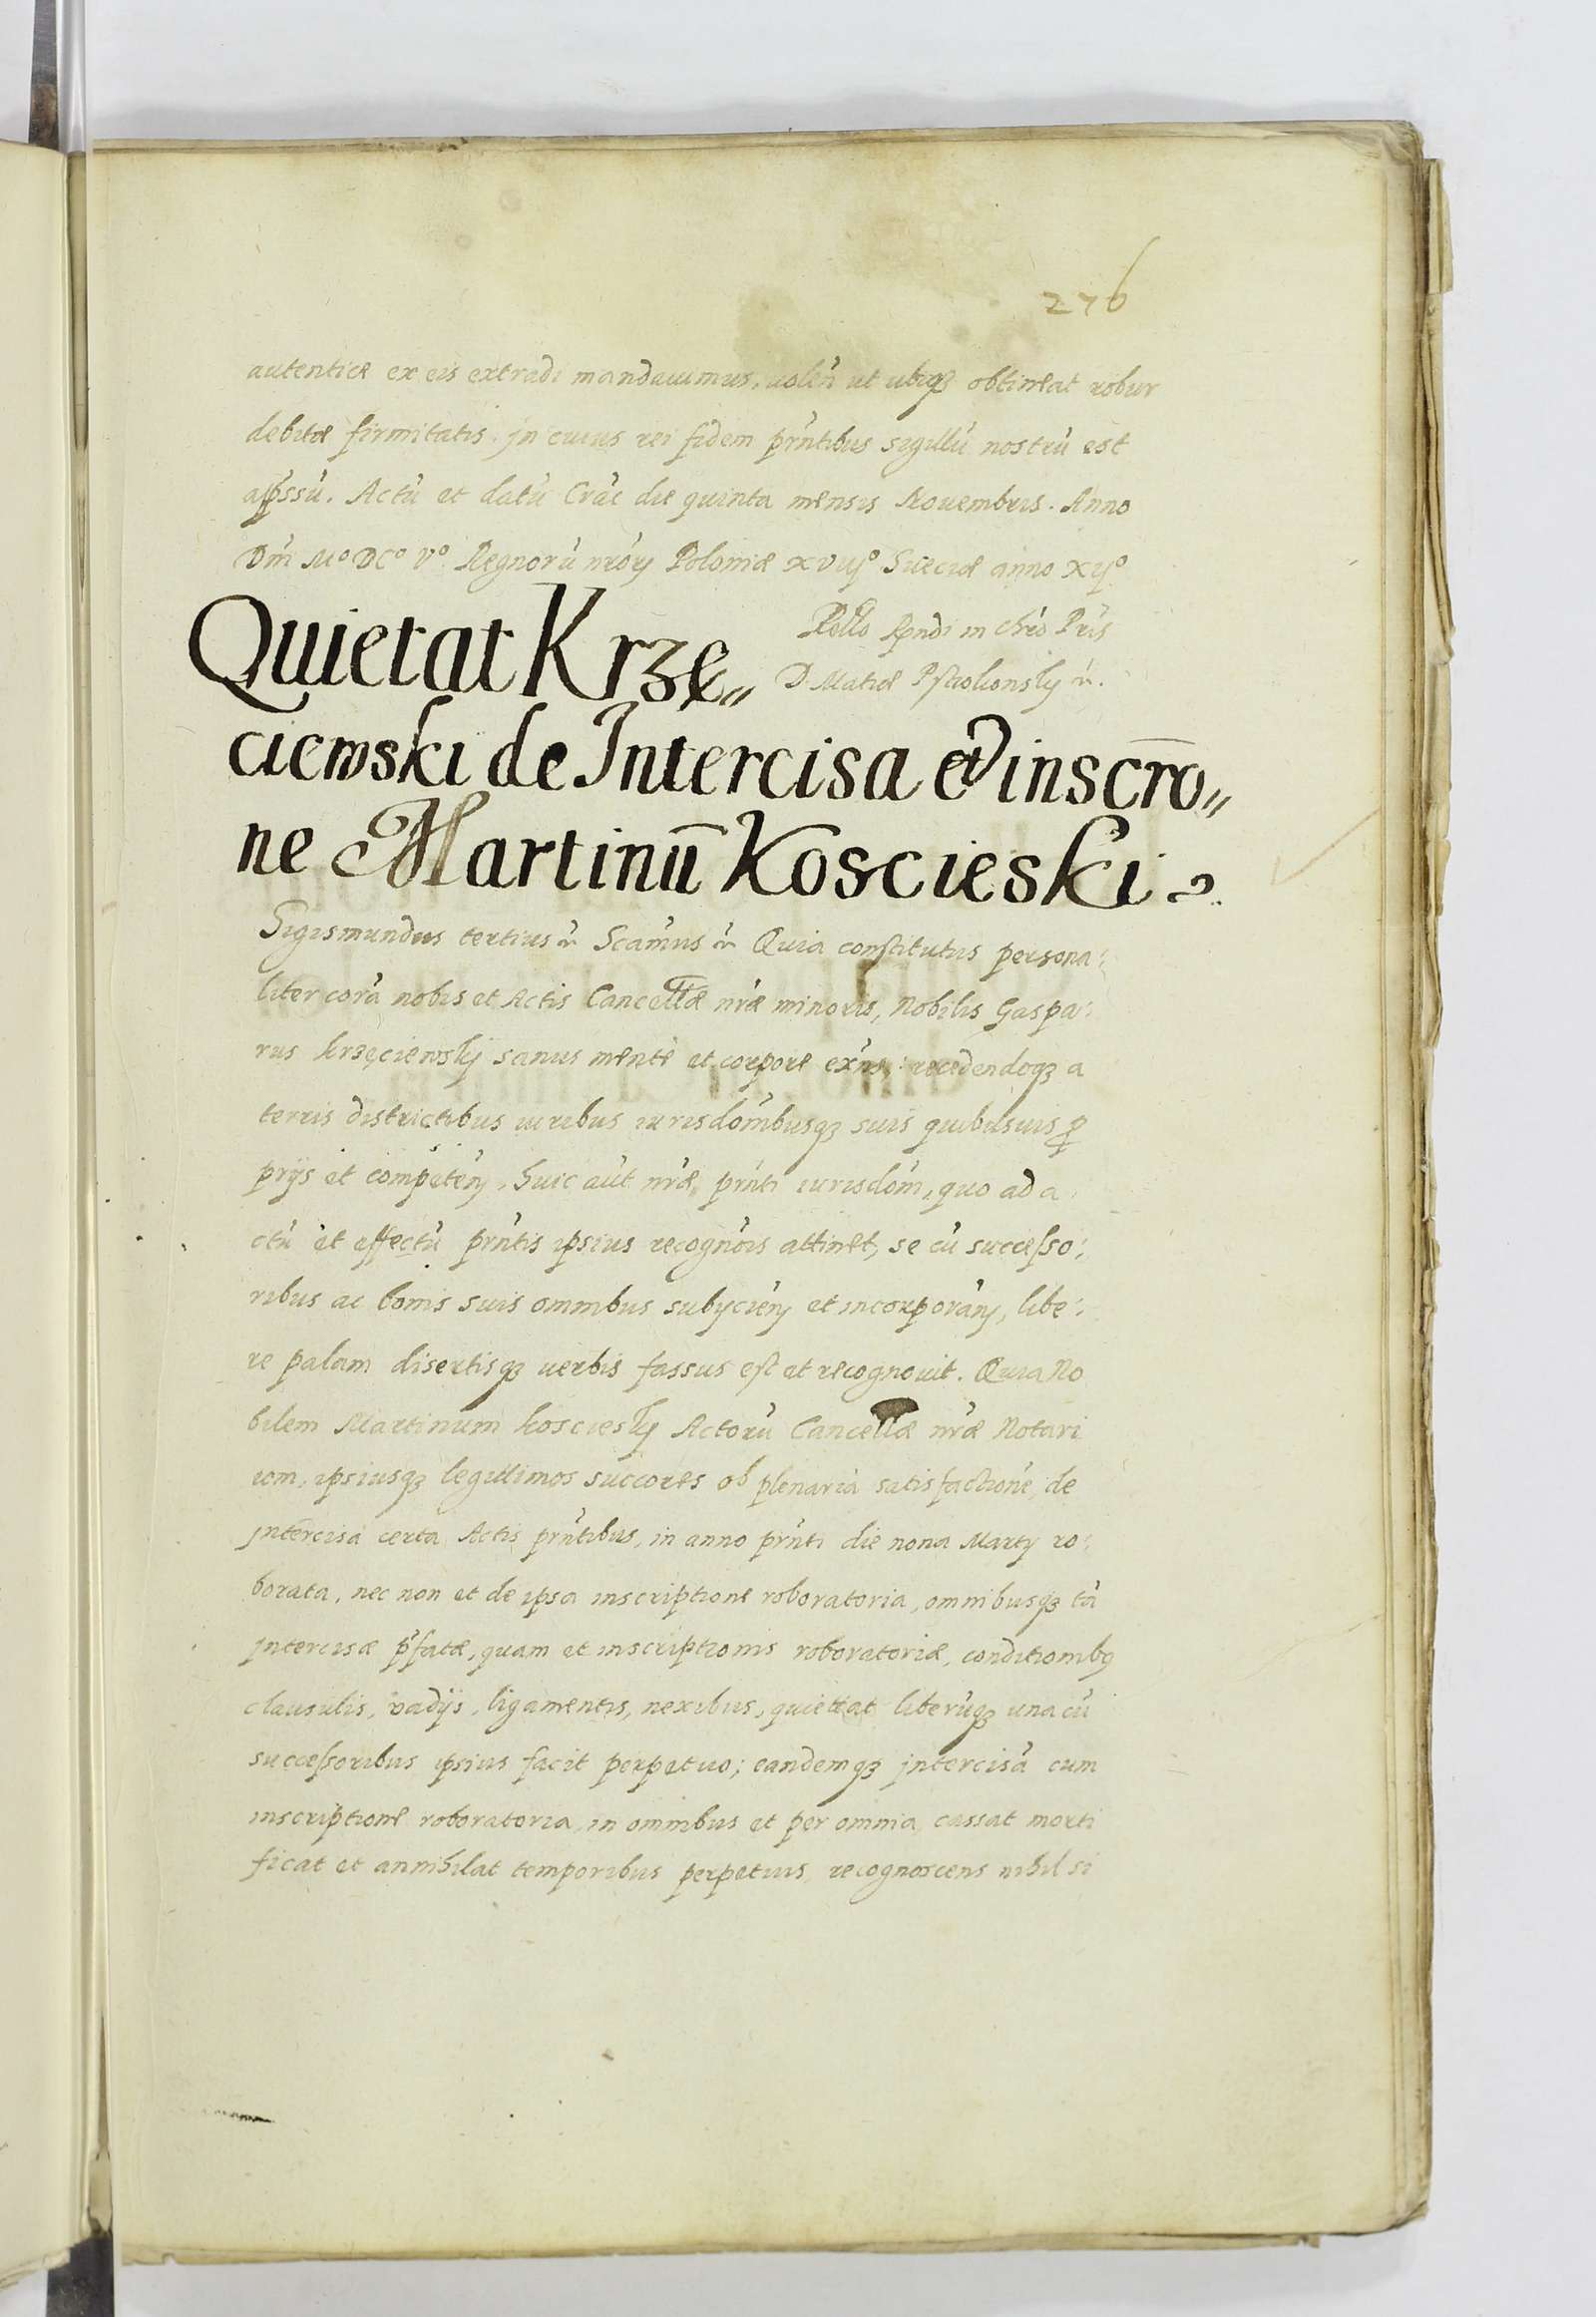 276
autenticæ ex eis extradi mandauimus, uoleń ut ubiqꝫ obtineat robur
debitæ firmitatis. Jn cuius rei fidem prn̄tibus sigillũ nostrũ est
app̄ssũ. Actũ et datũ Crac̃ die quinta mensis Nouembris. Anno
Dn̄i Mº DCº Vº. Regnorũ nr̃orȝ Poloniæ xviijº Sueciæ anno xijº
Rel̃lo Rṇdi in chr̃o Pr̃is
D. Matiæ Pstrokonsky ꝛc̃.
Quietat Krzę„
ciewski de Intercisa et inscr̄o„
ne Martinū Koscieski
Sigismundus tertius ꝛc̃ Scam̃us ꝛc̃ Quia constitutus persona:
liter corã nobis et Actis Cancell̃æ nr̃æ minoris, Nobilis Gaspa:
rus Krzęciewsky sanus mente et corpore exñs, recedendoqꝫ a
terris districtibus iuribus iurisdom̃busqꝫ suis quibusuis ꝓ
prijs et competeñ, huic aũt nr̃æ, prñti iurisdom̃, quo ad a
ctũ et effectũ prñtis ipsius recognõis attinet, se cũ successo:
ribus ac bonis suis omnibus subijcieñ et incorporañ, libe:
re palam disertisqꝫ uerbis fassus est et recognouit. Quia No
bilem Martinum Kosciesky Actorũ Cancell̃æ nr̃æ Notari
um, ipsiusqꝫ legittimos succores ob plenariã satisfactionẽ de
jntercisa certa Actis prñtibus, in anno prñti die nona Martij ro:
borata, nec non et de ipsa inscriptione roboratoria, omnibusqꝫ tã
jntercisæ p̃fatæ, quam et inscriptionis roboratoriæ, conditionibꝫ
clausulis, vadijs, ligamentis, nexibus, quiettat liberũqꝫ una cũ
successoribus ipsius facit perpetuo; eandemqꝫ jntercisã cum
inscriptione roboratoria in omnibus et per omnia cassat morti
ficat et annihilat temporibus perpetuis, recognoscens nihil si